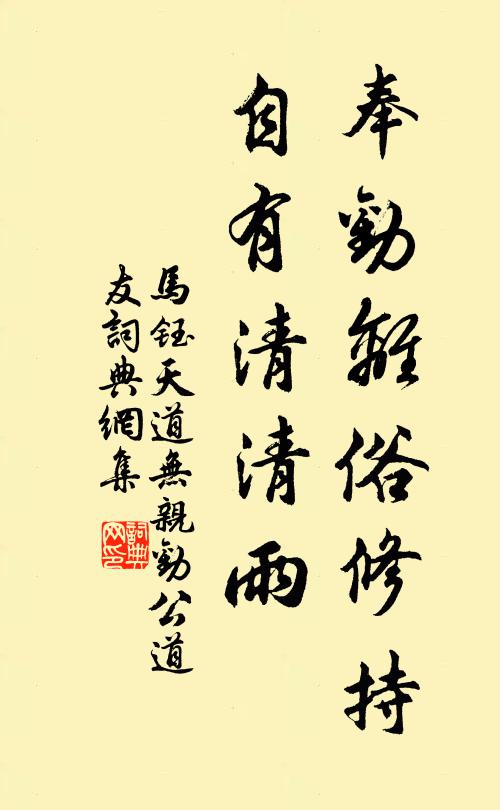 奉勸離俗修持
自有清清雨
馬鈺天道無親勸公道
友詞典網集
詞典网印